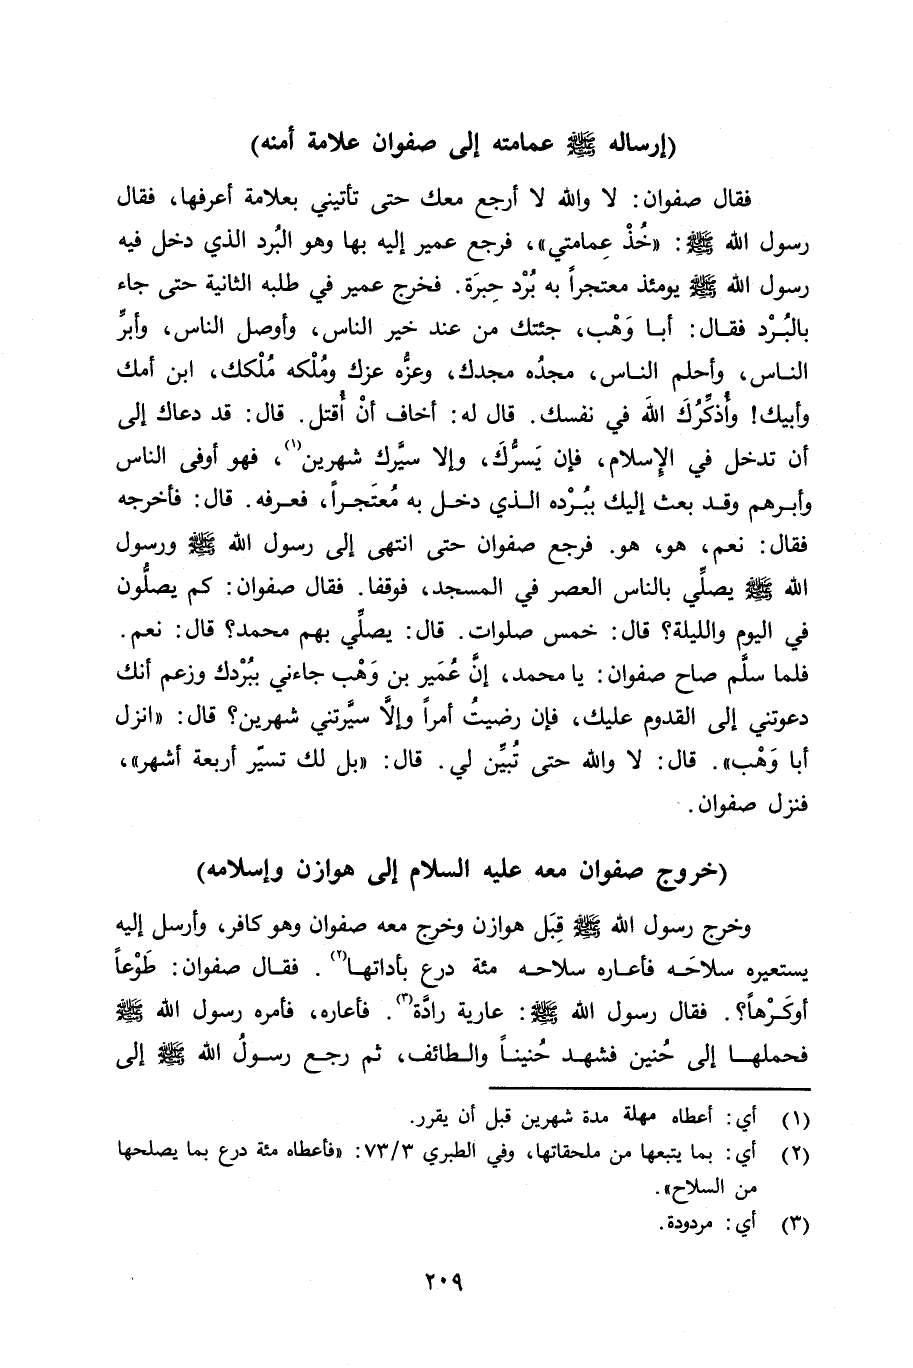 (إرساله ﷺ عمامته إلى صفوان علامة أمنه)
فقال صفوان: لا والله لا أرجع معك حتى تأتيني بعلامة أعرفها، فقال
رسول الله ﷺ: «خُذْ عِمامتي»، فرجع عمير إليه بها وهو البُرد الذي دخل فيه
رسول الله ﷺ يومئذ معتجراً به بُرْد حِبرَة. فخرج عمير في طلبه الثانية حتى جاء
بالبُرْد فقال: أبا وَهْب، جئتك من عند خير الناس، وأوصل الناس، وأبرِّ
الناس، وأحلم الناس، مجدُه مجدك، وعزُّه عزك ومُلْكه مُلْكك، ابن أمك
وأبيك! وأُذكِّرُكَ اللهَ في نفسك. قال له: أخاف أنْ أُقتل. قال: قد دعاك إلى
أن تدخل في الإسلام، فإن يَسرُّكَ، وإلا سيَّرك شهرين(١)، فهو أوفى الناس
وأبرهم وقد بعث إليك ببُرْده الذي دخل به مُعتَجراً، فعرفه. قال: فأخرجه
فقال: نعم، هو، هو. فرجع صفوان حتى انتهى إلى رسول الله ﷺ ورسول
الله ﷺ يصلِّي بالناس العصر في المسجد، فوقفا. فقال صفوان: كم يصلُّون
في اليوم والليلة؟ قال: خمس صلوات. قال: يصلِّي بهم محمد؟ قال: نعم.
فلما سلَّم صاح صفوان: يا محمد، إنَّ عُمَير بن وَهْب جاءني ببُرْدك وزعم أنك
دعوتني إلى القدوم عليك، فإن رضيتُ أمراً وإلاَّ سيَّرتني شهرين؟ قال: «انزل
أبا وَهْب». قال: لا والله حتى تُبيِّن لي. قال: «بل لك تسيّر أربعة أشهر»،
فنزل صفوان.
(خروج صفوان معه عليه السلام إلى هوازن وإسلامه)
وخرج رسول الله ﷺ قِبَل هوازن وخرج معه صفوان وهو كافر، وأرسل إليه
يستعيره سلاحَه فأعاره سلاحه مئة درع بأداتها(٢). فقال صفوان: طَوْعاً
أوكَرْهاً؟. فقال رسول الله ﷺ: عارية رادَّة(٣). فأعاره، فأمره رسول الله ﷺ
فحملها إلى حُنين فشهد حُنيناً والطائف، ثم رجع رسولُ الله ﷺ إلى
(١) أي: أعطاه مهلة مدة شهرين قبل أن يقرر.
(٢) أي: بما يتبعها من ملحقاتها، وفي الطبري ٧٣/٣: «فأعطاه مئة درع بما يصلحها
من السلاح».
(٣) أي: مردودة.
٢٠٩